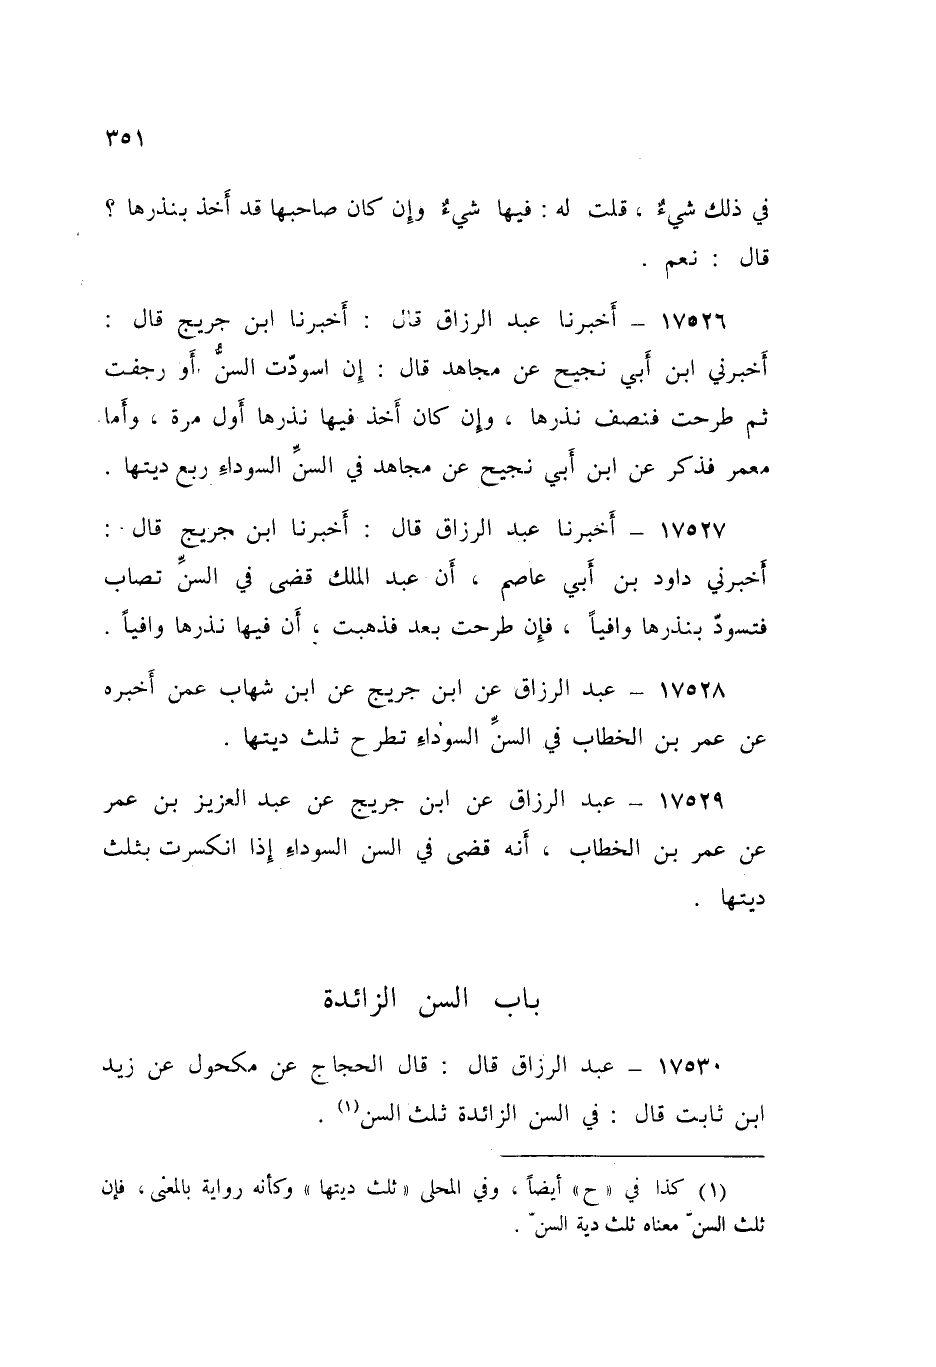 ٣٥١
في ذلك شيءٌ ، قلت له : فيها شيءٌ وإن كان صاحبها قد أَخذ بنذرها ؟
قال : نعم .
١٧٥٢٦ – أَخبرنا عبد الرزاق قال : أَخبرنا ابن جريج قال :
أَخبرني ابن أَبي نجيح عن مجاهد قال : إن اسودّت السنُّ أَو رجفت
ثم طرحت فنصف نذرها ، وإن كان أَخذ فيها نذرها أَول مرة ، وأَما
معمر فذكر عن ابن أَبي نجيح عن مجاهد في السنِّ السوداءِ ربع ديتها .
١٧٥٢٧ – أَخبرنا عبد الرزاق قال : أَخبرنا ابن جريج قال :
أَخبرني داود بن أَبي عاصم ، أَن عبد الملك قضى في السنِّ تصاب
فتسودّ بنذرها وافياً ، فإن طرحت بعد فذهبت ، أَن فيها نذرها وافياً .
١٧٥٢٨ – عبد الرزاق عن ابن جريج عن ابن شهاب عمن أَخبره
عن عمر بن الخطاب في السنِّ السوداءِ تطرح ثلث ديتها .
١٧٥٢٩ – عبد الرزاق عن ابن جريج عن عبد العزيز بن عمر
عن عمر بن الخطاب ، أَنه قضى في السن السوداءِ إذا انكسرت بثلث
ديتها .
باب السن الزائدة
١٧٥٣٠ – عبد الرزاق قال : قال الحجاج عن مكحول عن زيد
ابن ثابت قال : في السن الزائدة ثلث السن(١) .
(١) كذا في « ح» أيضاً ، وفي المحلى « ثلث ديتها » وكأنه رواية بالمعنى ، فإن
ثلث السنّ معناه ثلث دية السنّ .